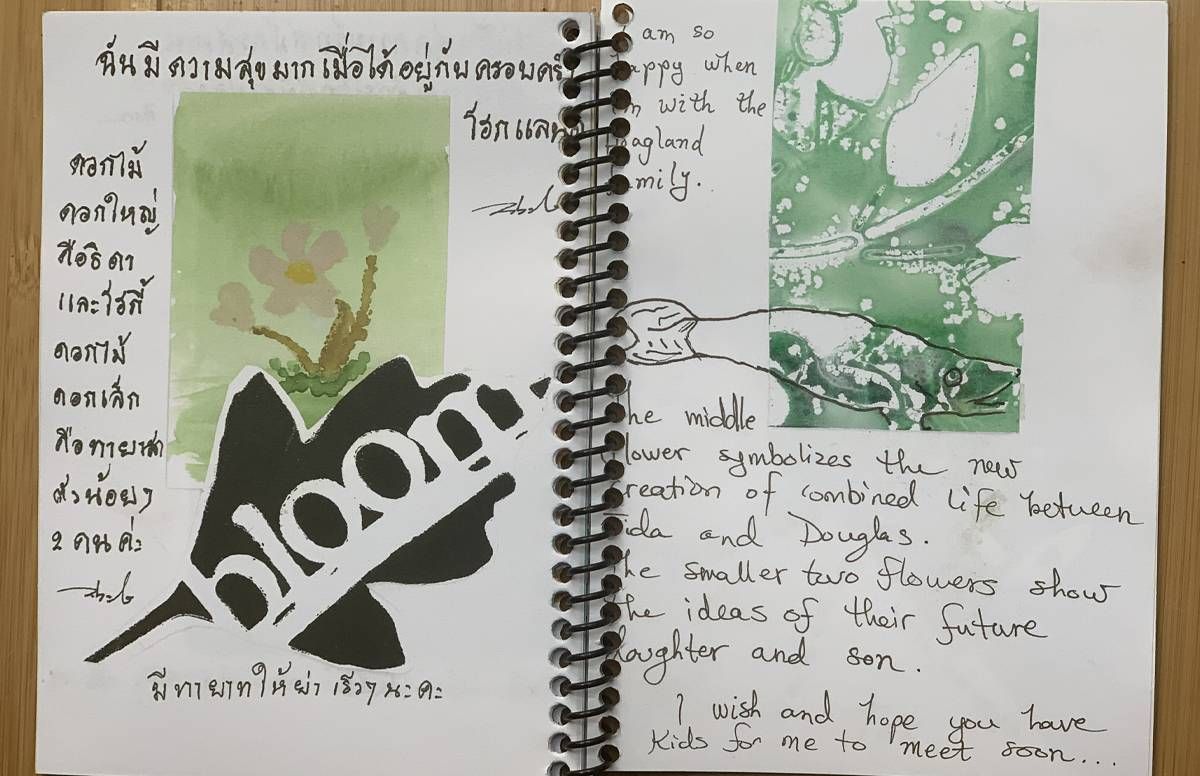 ฉันมีความสุขมากเมื่อได้อยู่กับครอบครัว
โฮกแลนด์
ดอกไม้
ดอกใหญ่
คือธิดา
และ
ดอกไม้
ดอกเล็ก
คือทายาท
ตัวน้อยๆ
2 คนค่ะ
bloom
มีทายาทให้ย่า เร็วๆนะคะ
I am so
happy when
I'm with the
Hoagland
family.
The middle
flower symbolizes the new
creation of combined life between
Tida and Douglas.
The smaller two flowers show
the ideas of their future
daughter and son.
I wish and hope you have
kids for me to meet soon...